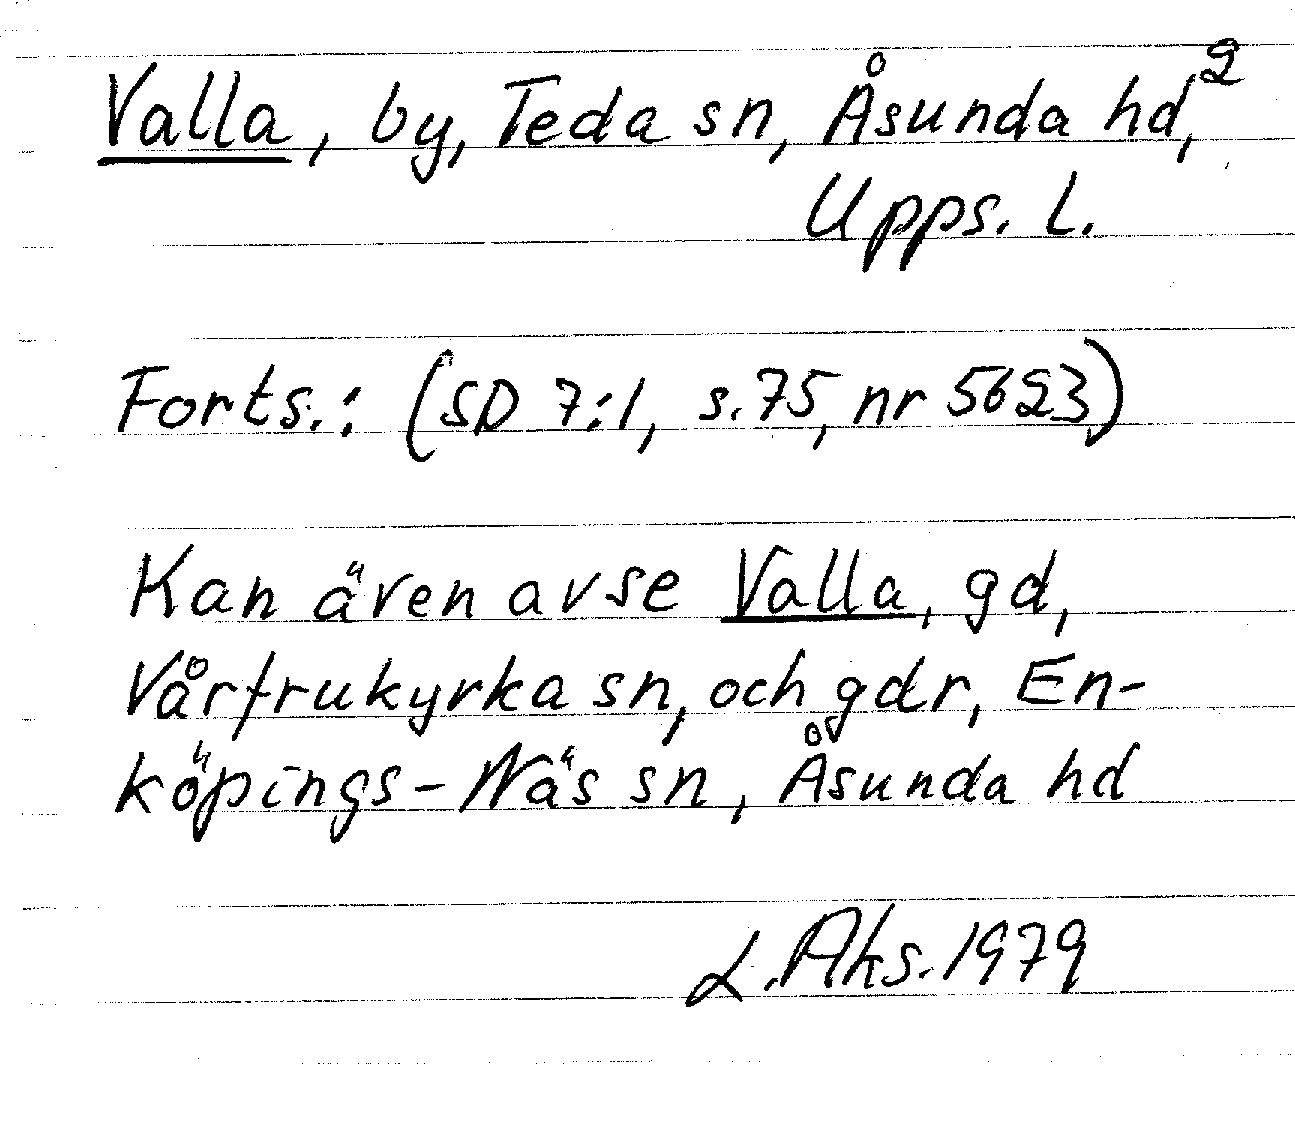 Valla, by, Teda sn, Åsunda hd, 2
Upps. l.
Forts.: (SD 7:1, s. 75, nr 5623)
Kan även avse Valla, gd,
Vårfrukyrka sn, och gdr, En-
köpings-Näs sn, Åsunda hd
L. Aks. 1979